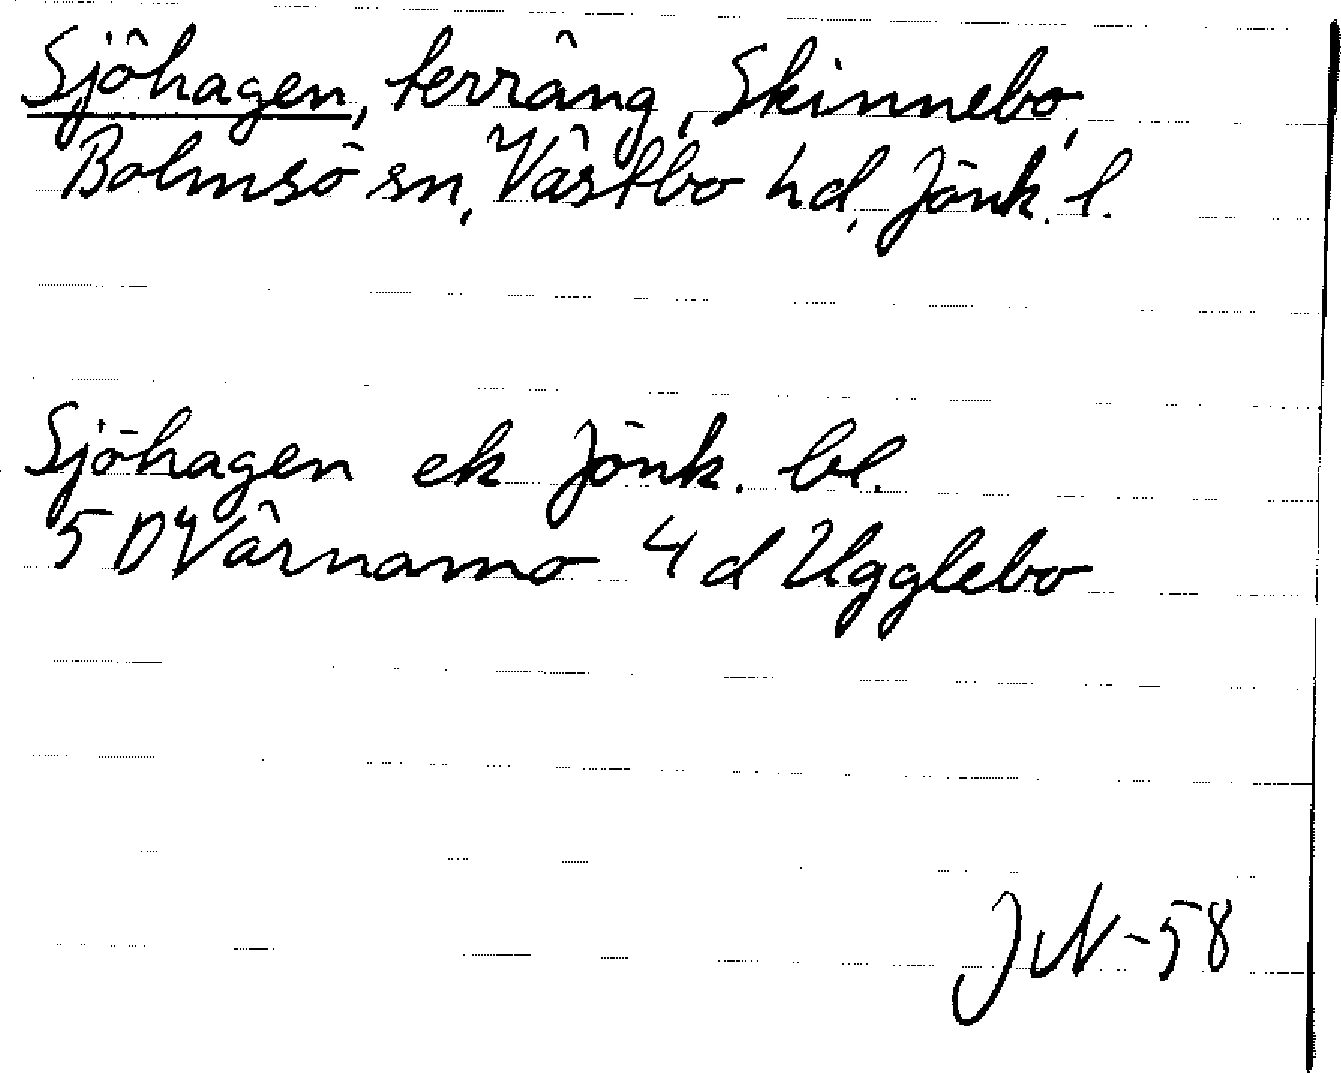 Sjöhagen, terräng, Skinnebo,
Bolmsö sn, Västbo hd, Jönk. l.
Sjöhagen ek Jönk. bl.
5 D Värnamo 4 d Ugglebo
JN-58